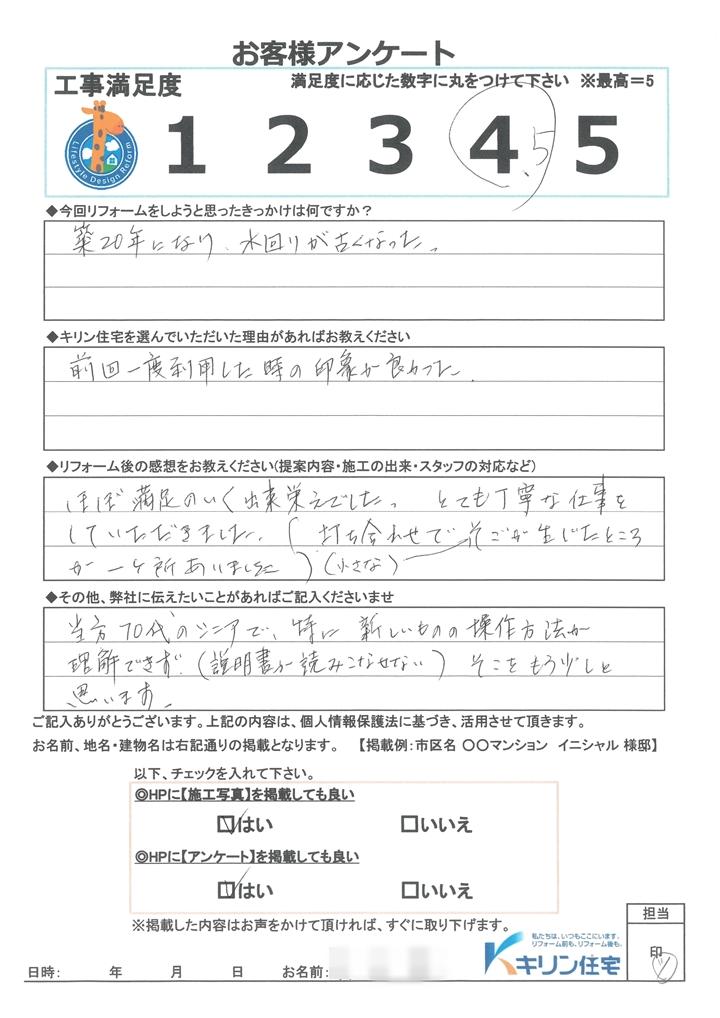 お客様アンケート
工事満足度 満足度に応じた数字に丸をつけて下さい ※最高=5
Lifestyle Design Reform
1 2 3 4 .5 5
◆今回リフォームをしようと思ったきっかけは何ですか？
築20年になり、水回りが古くなった。
◆キリン住宅を選んでいただいた理由があればお教えください
前回一度利用した時の印象が良かった.
◆リフォーム後の感想をお教えください(提案内容・施工の出来・スタッフの対応など)
ほぼ満足のいく出来栄えでした。とても丁寧な仕事を
していただきました。(打ち合わせでそごが生じたところ
が一ヶ所ありました)(小さな)
◆その他、弊社に伝えたいことがあればご記入くださいませ
当方70代のシニアで、特に新しいものの操作方法が
理解できず.(説明書が読みこなせない)そこをもう少しと
思います。
ご記入ありがとうございます。上記の内容は、個人情報保護法に基づき、活用させて頂きます。
お名前、地名・建物名は右記通りの掲載となります。 【掲載例：市区名 〇〇マンション イニシャル 様邸】
以下、チェックを入れて下さい。
◎HPに【施工写真】を掲載しても良い
☑はい □いいえ
◎HPに【アンケート】を掲載しても良い
☑はい □いいえ
※掲載した内容はお声をかけて頂ければ、すぐに取り下げます。
担当
印
私たちは、いつもここにいます。
リフォーム前も、リフォーム後も。
キリン住宅
日時： 年 月 日 お名前：